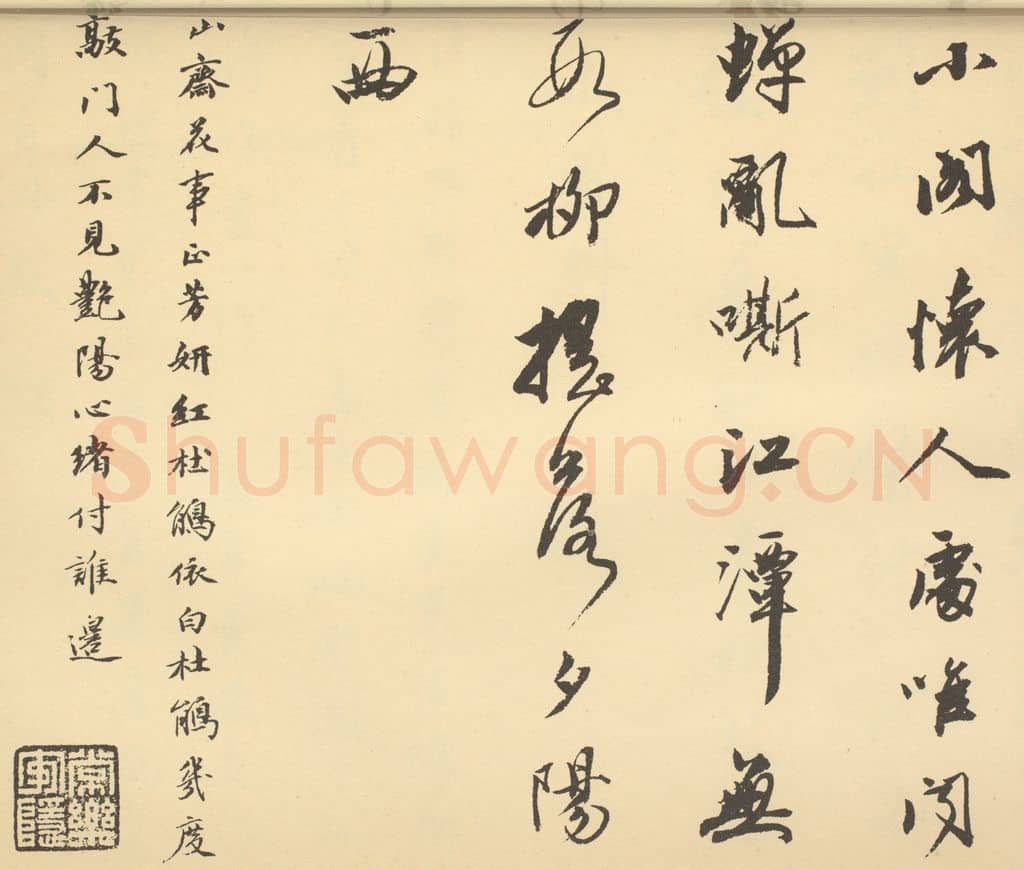 小閣懷人處唯聞
蟬亂嘶江潭無
數柳搖落夕陽
西
山齋花事正芳妍紅杜鵑依白杜鵑幾度
敲門人不見艷陽心緒付誰邊
Shufawang.CN